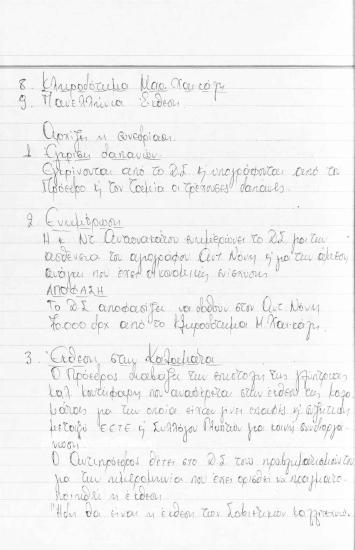 8. Κληροδότημα Μαρ. Χαικάλη
9. Πανελλήνια Έκθεση.
Αρχίζει η συνεδρίαση.
1. Έγκριση δαπανών
Εγκρίνονται από το Δ.Σ. ή υπογράφονται από τον
Πρόεδρο ή τον Ταμία οι τρέχουσες δαπανες.
2. Ενημέρωση
Η κ. Ντ. ενημερώνει το Δ.Σ. για την
ασθένεια του αντ. Νόνη ή για την άμεση
ανάγκη που έχει οικονομικής ενίσχυσης
ΑΠΟΦΑΣΗ
Το Δ.Σ. αποφασίζει να δοθούν στον Αντ. Νόνη
70.000 δρχ από το Κληροδότημα Μ. Χαικάλη.
3. Έκθεση στην Καλαμάτα
Ο Πρόεδρος διαβάζει την επιστολή της γλύπτριας
που αναφέρεται στην έκθεση της Καλα
μάτας για την οποία είχαν γίνει επαφές ή συζήτηση
μεταξύ ΕΕΤΕ ή Συλλόγου Γλυπτών για κοινή συνδιοργά
νωση.
Ο Αντιπρόεδρος θέτει στο Δ.Σ. τους προβληματισμούς του
για την ημερομηνία που έχει ορισθεί να πραγματο
ποιηθεί η έκθεση.
θα είναι η έκθεση των Σοβιετικών καλλιτεχνών